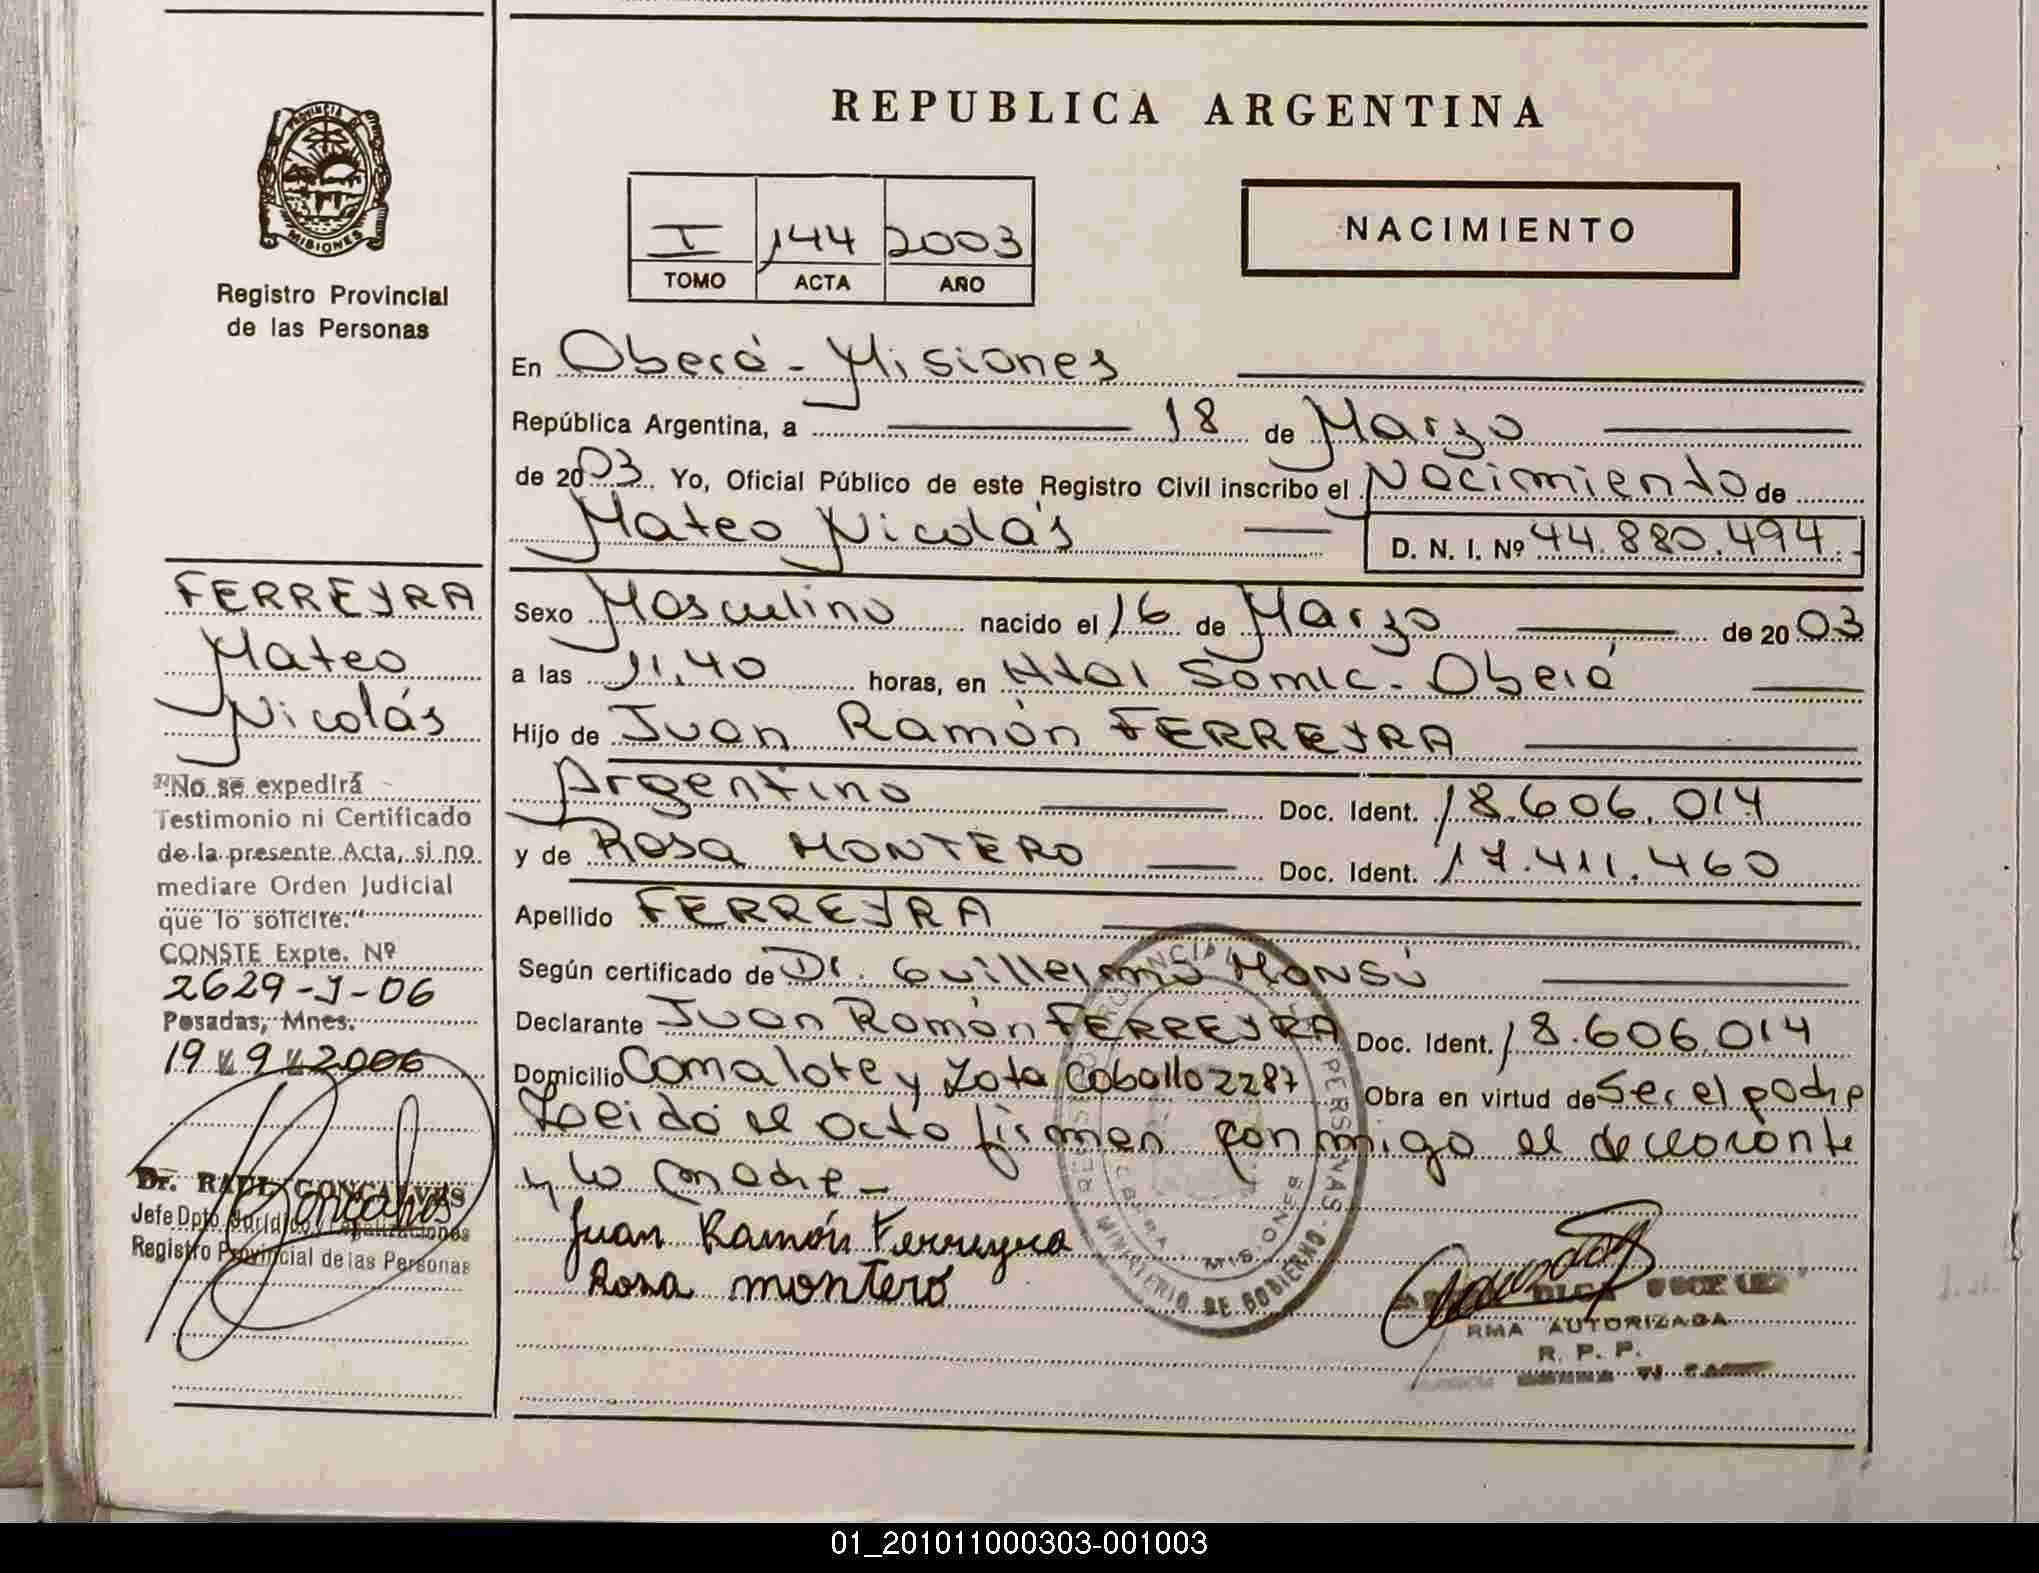 REPUBLICA ARGENTINA
PROVINCIA DE
MISIONES
Registro Provincial
de las Personas
I 144 2003
TOMO ACTA AÑO
NACIMIENTO
En Oberá - Misiones
República Argentina, a 18 de Marzo
de 2003. Yo, Oficial Público de este Registro Civil inscribo el Nacimiento de
Mateo Nicolás
D. N. I. Nº 44.880.494.-
Sexo Masculino nacido el 16 de Marzo de 2003
a las 11,40 horas, en Htal Samic - Oberá
Hijo de Juan Ramón FERREYRA
Argentino Doc. Ident. 18.606.014
y de Rosa MONTERO Doc. Ident. 17.411.460
Apellido FERREYRA
Según certificado de Dr. Guillermo MONSÚ
Declarante Juan Ramón FERREYRA Doc. Ident. 18.606.014
Domicilio Camalote y Zota Caballo 2287 Obra en virtud de Ser el padre
Leida el acta firman conmigo el declarante
y la madre -
Juan Ramón Ferreyra
Rosa montero
FERREYRA
Mateo
Nicolás
"No se expedirá
Testimonio ni Certificado
de la presente Acta, si no
mediare Orden Judicial
que lo solicite."
CONSTE Expte. Nº
2629-J-06
Posadas, Mnes.
19 9 2006
Dr. RAUL GONÇALVES
Jefe Dpto. Jurídico y Legalizaciones
Registro Provincial de las Personas
PERSONAS - MINISTERIO DE GOBIERNO
MISIONES
AUTORIZADA
R. P. P.
01_201011000303-001003